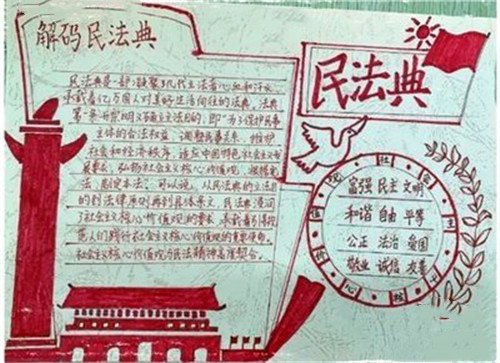 解码民法典
民法典
民法典是一部凝聚了几代立法者心血和汗水,
承载着亿万国人对美好生活向往的法典。法典
第一条开宗明义阐明立法目的,即"为了保护民事
主体的合法权益,调整民事关系,维护
社会和经济秩序,适应中国特色社会主义发
展要求,弘扬社会主义核心价值观,根据宪
法,制定本法。可以说,从民法典的立法目
的到法律原则再到具体条文,民法典浸润
了社会主义核心价值观的要素,承载着引领规
范人们践行社会主义核心价值观的重要使命。
社会主义核心价值观与民法精神高度契合。
富强 民主 文明
和谐 自由 平等
公正 法治 爱国
敬业 诚信 友善